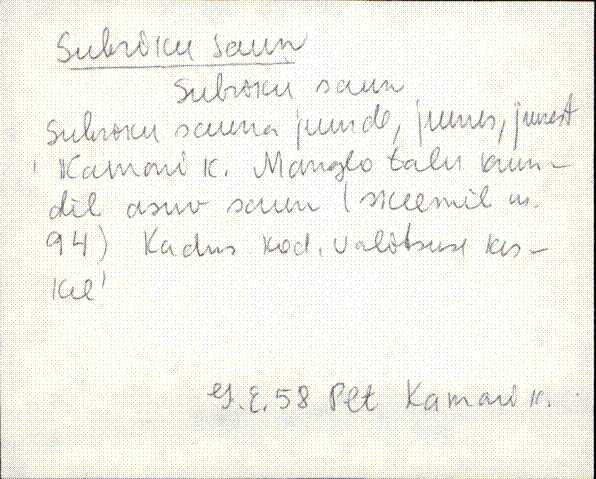 Subroku saun
Subroku saun
Subroku sauna juude, juures, juurest
'Kamari k. Manglo talu krun-
dil asuv saun (skeemil nr.
94) Kadus kod. valitsuse kes-
kel'
E. 58 Plt Kamari k.